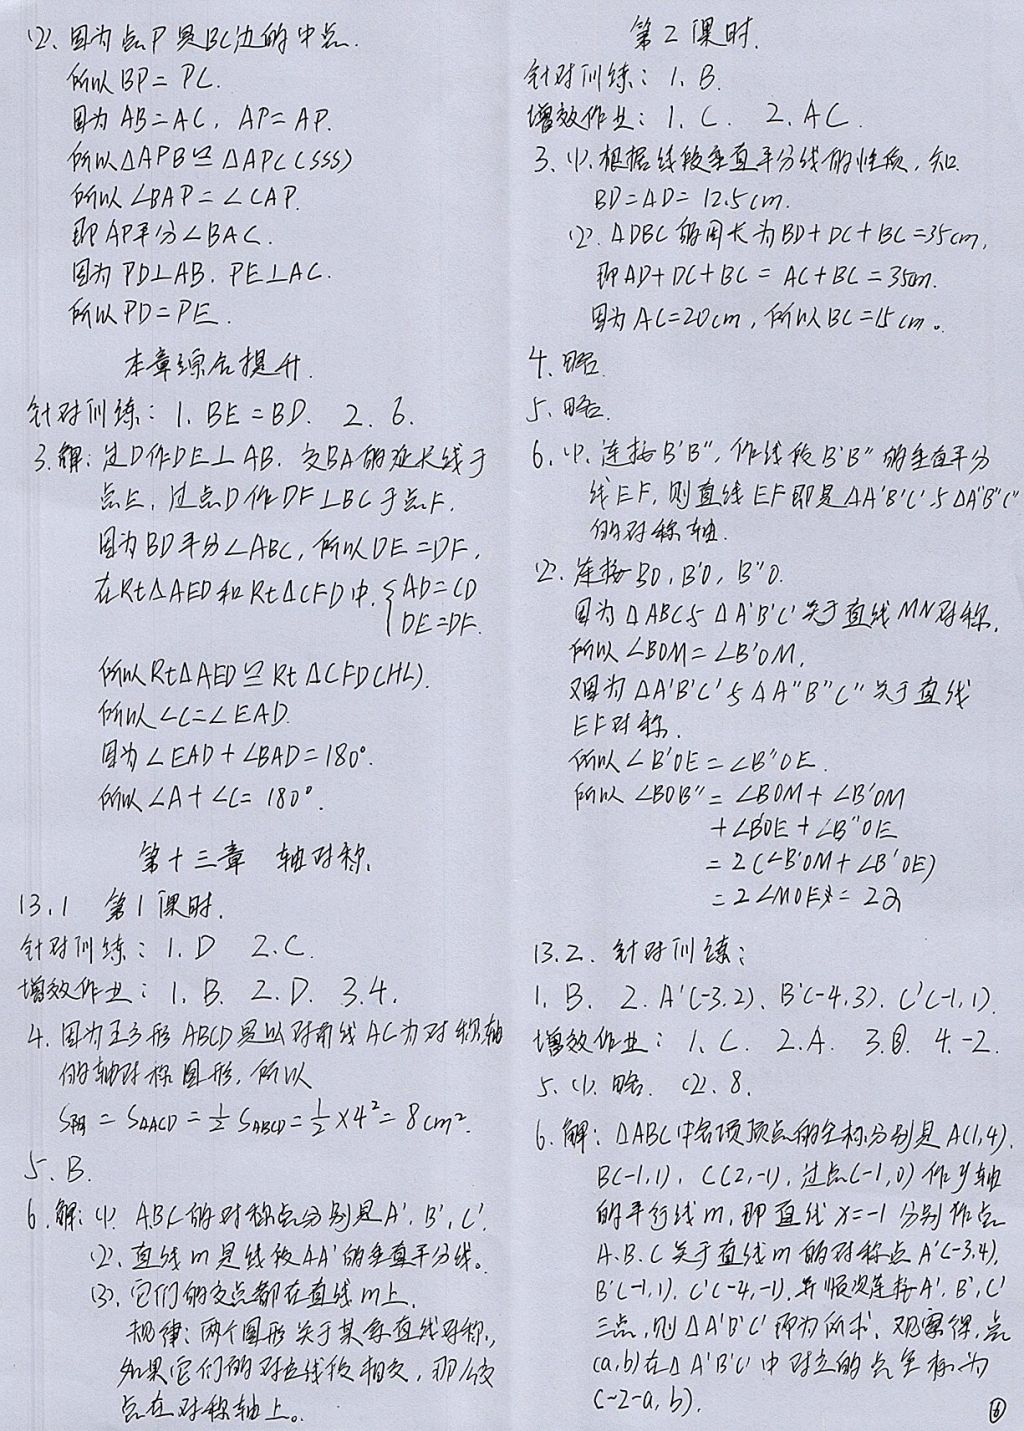 (2)、因为点P是BC边的中点.
所以BP=PC.
因为AB=AC, AP=AP.
所以△APB≌△APC(SSS)
所以∠BAP=∠CAP.
即AP平分∠BAC.
因为PD⊥AB. PE⊥AC.
所以PD=PE.
本章综合提升.
针对训练: 1. BE=BD. 2. 6.
3.解:过D作DE⊥AB. 交BA的延长线于
点E, 过点D作DF⊥BC于点F.
因为BD平分∠ABC, 所以DE=DF,
在Rt△AED和Rt△CFD中. {AD=CD
DE=DF.
所以Rt△AED≌Rt△CFD(HL).
所以∠C=∠EAD.
因为∠EAD+∠BAD=180°.
所以∠A+∠C=180°.
第十三章 轴对称.
13.1 第1课时.
针对训练: 1. D 2. C.
增效作业: 1. B. 2. D. 3.4.
4. 因为正方形ABCD是以对角线AC为对称轴
的轴对称图形, 所以
S阴=S△ACD=½S ABCD=½×4²=8cm².
5. B.
6.解:(1). ABC的对称点分别是A', B', C'.
(2). 直线m是线段AA'的垂直平分线。
(3). 它们的交点都在直线m上.
规律:两个图形关于某条直线对称,
如果它们的对应线段相交, 那么交
点在对称轴上。
第2课时.
针对训练: 1. B.
增效作业: 1. C. 2. AC.
3. (1). 根据线段垂直平分线的性质, 知
BD=AD=12.5cm.
(2). △DBC的周长为BD+DC+BC=35cm,
即AD+DC+BC=AC+BC=35cm.
因为AC=20cm, 所以BC=15cm。
4. 略.
5. 略.
6. (1). 连接B'B", 作线段B'B"的垂直平分
线EF, 则直线EF即是△A'B'C'与△A"B"C"
的对称轴.
(2). 连接BO, B'O, B"O.
因为△ABC与△A'B'C'关于直线MN对称,
所以∠BOM=∠B'OM,
又因为△A'B'C'与△A"B"C"关于直线
EF对称.
所以∠B'OE=∠B"OE.
所以∠BOB"=∠BOM+∠B'OM
+∠B'OE+∠B"OE
=2(∠B'OM+∠B'OE)
=2∠MOE=2α
13.2. 针对训练:
1. B. 2. A'(-3,2)、B'(-4,3). C'(-1,1).
增效作业: 1. C. 2. A. 3. 4. -2.
5. (1). 略. (2). 8.
6. 解: △ABC中各项顶点的坐标分别是A(1,4).
B(-1,1), C(2,-1), 过点(-1,0)作y轴
的平行线m, 即直线x=-1分别作点
A.B.C关于直线m的对称点A'(-3,4),
B'(-1,1), C'(-4,-1), 并顺次连接A', B', C'
三点, 则△A'B'C'即为所求. 观察得, 点
(a,b)在△A'B'C'中对应的点坐标为
(-2-a, b).
⑥